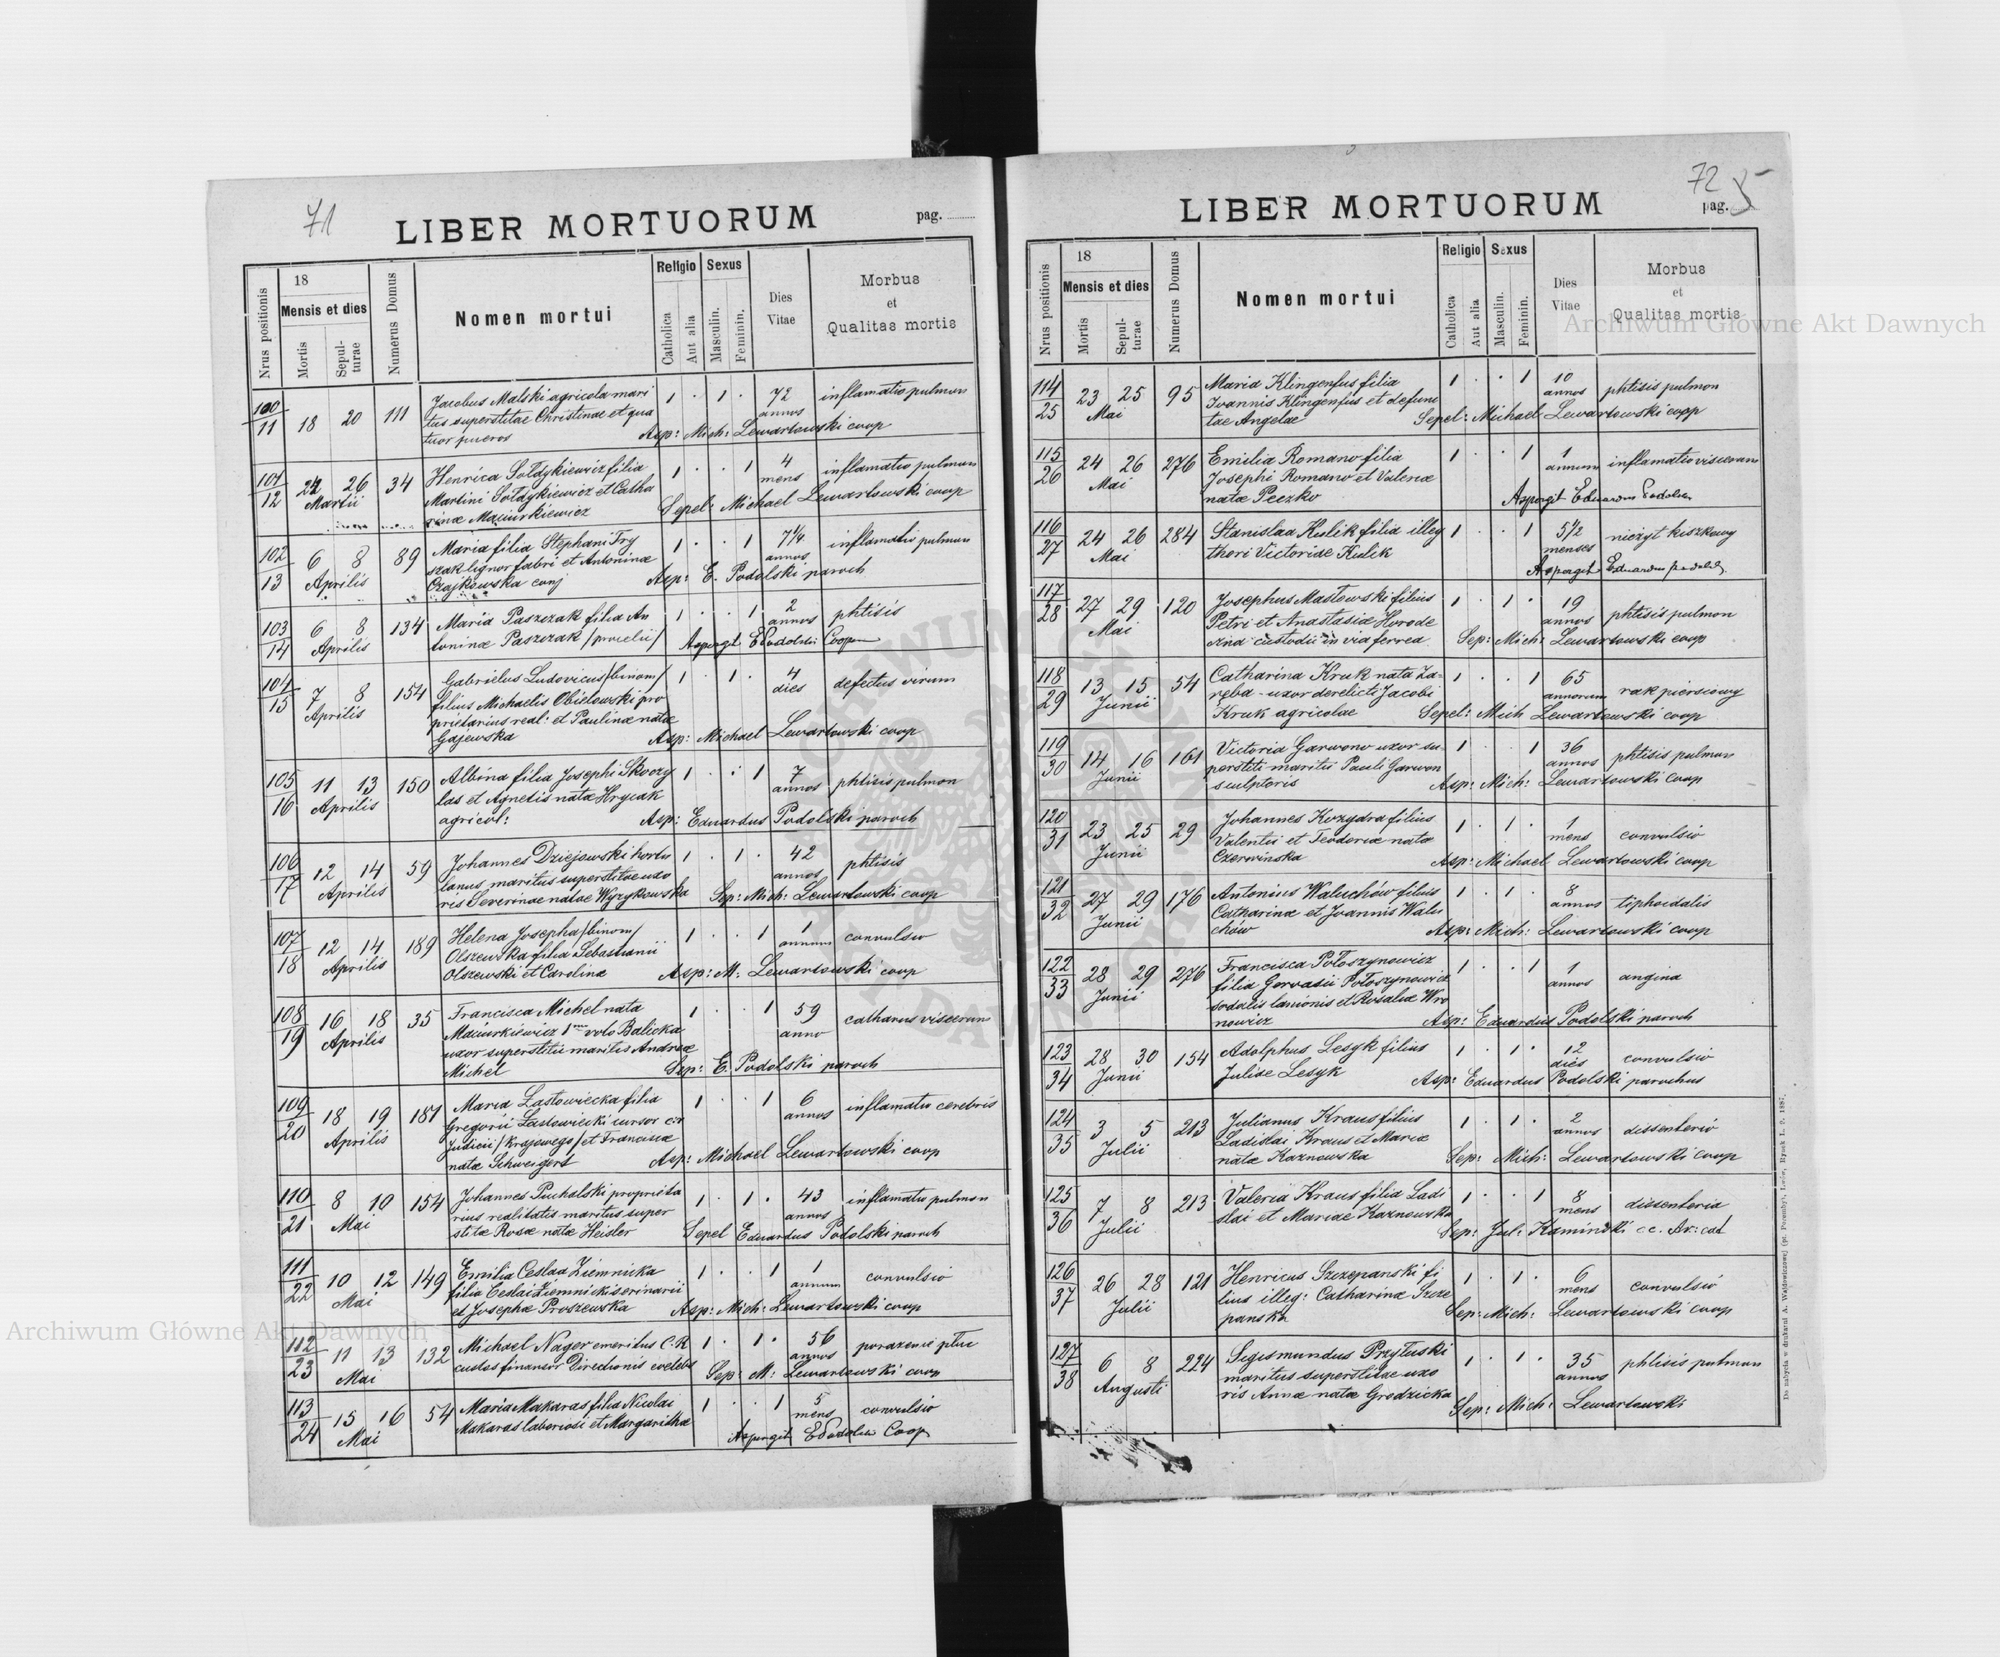 71
LIBER MORTUORUM
pag.
Nrus positionis
18
Mensis et dies
Mortis
Sepul-
turae
Numerus Domus
Nomen mortui
Religio
Catholica
Aut alia
Sexus
Masculin.
Feminin.
Dies
Vitae
Morbus
et
Qualitas mortis
100/11 18 20 111 Jacobus Malski agricola mari 1 . 1 . 72 annos inflamatio pulmon
tus superstitae Christinae et qua
tuor pueros Asp: Mich: Lewartowski coop
101/12 22 26 Martii 34 Henrica Sołdykiewicz filia 1 . . 1 4 mens inflamatio pulmon
Martini Sołdykiewicz et Catha
rinae Maciurkiewicz Sepel: Michael Lewartowski coop
102/13 6 8 Aprilis 89 Maria filia Stephani Fry 1 . . 1 7¼ annos inflamatio pulmon
szak lignor fabri et Antoninae
Czajkowska conj Asp: E. Podolski paroch
103/14 6 8 Aprilis 134 Maria Paszczak filia An 1 . . 1 2 annos phtisis
toninae Paszczak Aspergit EPodolski Coop
104/15 7 8 Aprilis 154 Gabrielus Ludovicus /binom/ 1 . 1 . 4 dies defectus virium
filius Michaelis Obielowski pro
prietarius real: et Paulinae natae
Gajewska Asp: Michael Lewartowski coop
105/16 11 13 Aprilis 150 Albina filia Josephi Skoczy 1 . . 1 7 annos phtisis pulmon
las et Agnetis natae Hrycak
agricol: Asp: Eduardus Podolski paroch
106/17 12 14 Aprilis 59 Johannes Dziejowski hortu 1 . 1 . 42 annos phtisis
lanus maritus superstitae uxo
ris Severinae natae Wyrzykowska Sep: Mich: Lewartowski coop
107/18 12 14 Aprilis 189 Helena Josepha /binom/ 1 . . 1 1 annum convulsio
Olszewska filia Sebastianii
Olszewski et Carolinae Asp: M: Lewartowski coop
108/19 16 18 Aprilis 35 Francisca Michel nata 1 . . 1 59 anno catharus viscerum
Maciurkiewicz 1mo voto Balicka
uxor superstitii maritis Andreae
Michel Sep: E. Podolski paroch
109/20 18 19 Aprilis 181 Maria Lastowiecka filia 1 . . 1 6 annos inflamatio cerebris
Gregorii Lastowiecki cursor c:r
Judicii /Krajowego/ et Franciscae
natae Schweigert Asp: Michael Lewartowski coop
110/21 8 10 Mai 154 Johannes Puchalski proprieta 1 . 1 . 43 annos inflamatio pulmon
rius realitatis maritus super
stitae Rosae natae Heisler Sepel Eduardus Podolski paroch
111/22 10 12 Mai 149 Emilia Ceslaa Ziemnicka 1 . . 1 1 annum convulsio
filia Ceslai Ziemnicki serinarii
et Josephae Proszewska Asp: Mich: Lewartowski coop
112/23 11 13 Mai 132 Michael Nager emeritus C.R 1 . 1 . 56 annos porażenie płuc
custos financor Directionis coelebs Sep: M: Lewartowski coop
113/24 15 16 Mai 54 Maria Makaras filia Nicolai 1 . . 1 5 mens convulsio
Makaras laboriosi et Margarithae Aspergit EPodolski Coop
72 5
LIBER MORTUORUM
pag.
Nrus positionis
18
Mensis et dies
Mortis
Sepul-
turae
Numerus Domus
Nomen mortui
Religio
Catholica
Aut alia
Sexus
Masculin.
Feminin.
Dies
Vitae
Morbus
et
Qualitas mortis
114/25 23 25 Mai 95 Maria Klingenfus filia 1 . . 1 10 annos phtisis pulmon
Joannis Klingenfus et defunc
tae Angelae Sepel: Michael Lewartowski coop
115/26 24 26 Mai 276 Emilia Romano filia 1 . . 1 1 annum inflamatio viscerum
Josephi Romano et Valeriae
natae Peczko Aspergit Eduardus Podolski
116/27 24 26 Mai 284 Stanislaa Kulik filia illeg 1 . . 1 5½ menses nieżyt kiszkowy
thori Victoriae Kulik Aspergit Eduardus Podolski
117/28 27 29 Mai 120 Josephus Masłowski filius 1 . 1 . 19 annos phtisis pulmon
Petri et Anastasiae Horode
czna custodii in via ferrea Sep: Mich: Lewartowski coop
118/29 13 15 Junii 54 Catharina Kruk nata Za- 1 . . 1 65 annorum rak piersiowy
reba - uxor derelicti Jacobi
Kruk agricolae Sepel: Mich Lewartowski coop
119/30 14 16 Junii 161 Victoria Garwono uxor su- 1 . . 1 36 annos phtisis pulmon
perstiti maritii Pauli Garwon
sculptoris Asp: Mich: Lewartowski coop
120/31 23 25 Junii 29 Johannes Kozydra filius 1 . 1 . 1 mens convulsio
Valentii et Teodoriae natae
Czerwinska Asp: Michael Lewartowski coop
121/32 27 29 Junii 176 Antonius Waluchów filius 1 . 1 . 8 annos tiphoidalis
Catharinae et Joannis Walu
chów Asp: Mich: Lewartowski coop
122/33 28 29 Junii 276 Francisca Potoszynowicz 1 . . 1 1 annos angina
filia Gervasii Potoszynowicz
sodalis lanionis et Rosaliae Wro
nowicz Asp: Eduardus Podolski paroch
123/34 28 30 Junii 154 Adolphus Lesyk filius 1 . 1 . 12 dies convulsio
Juliae Lesyk Asp: Eduardus Podolski parochus
124/35 3 5 Julii 213 Julianus Kraus filius 1 . 1 . 2 annos dissenteria
Ladislai Kraus et Mariae
natae Kaznowska Sep: Mich: Lewartowski coop
125/36 7 8 Julii 213 Valeria Kraus filia Ladi 1 . . 1 8 mens dissenteria
slai et Mariae Kaznowska Sep: Jul: Kaminski
126/37 26 28 Julii 121 Henricus Szczepanski fi 1 . 1 . 6 mens convulsio
lius illeg: Catharinae Szcze
panska Sep: Mich: Lewartowski coop
127/38 6 8 Augusti 224 Sigismundus Przyłuski 1 . 1 . 35 annos phtisis pulmon
maritus superstitae uxo
ris Annae natae Grodzicka Sep: Mich: Lewartowski
Archiwum Główne Akt Dawnych
Archiwum Główne Akt Dawnych